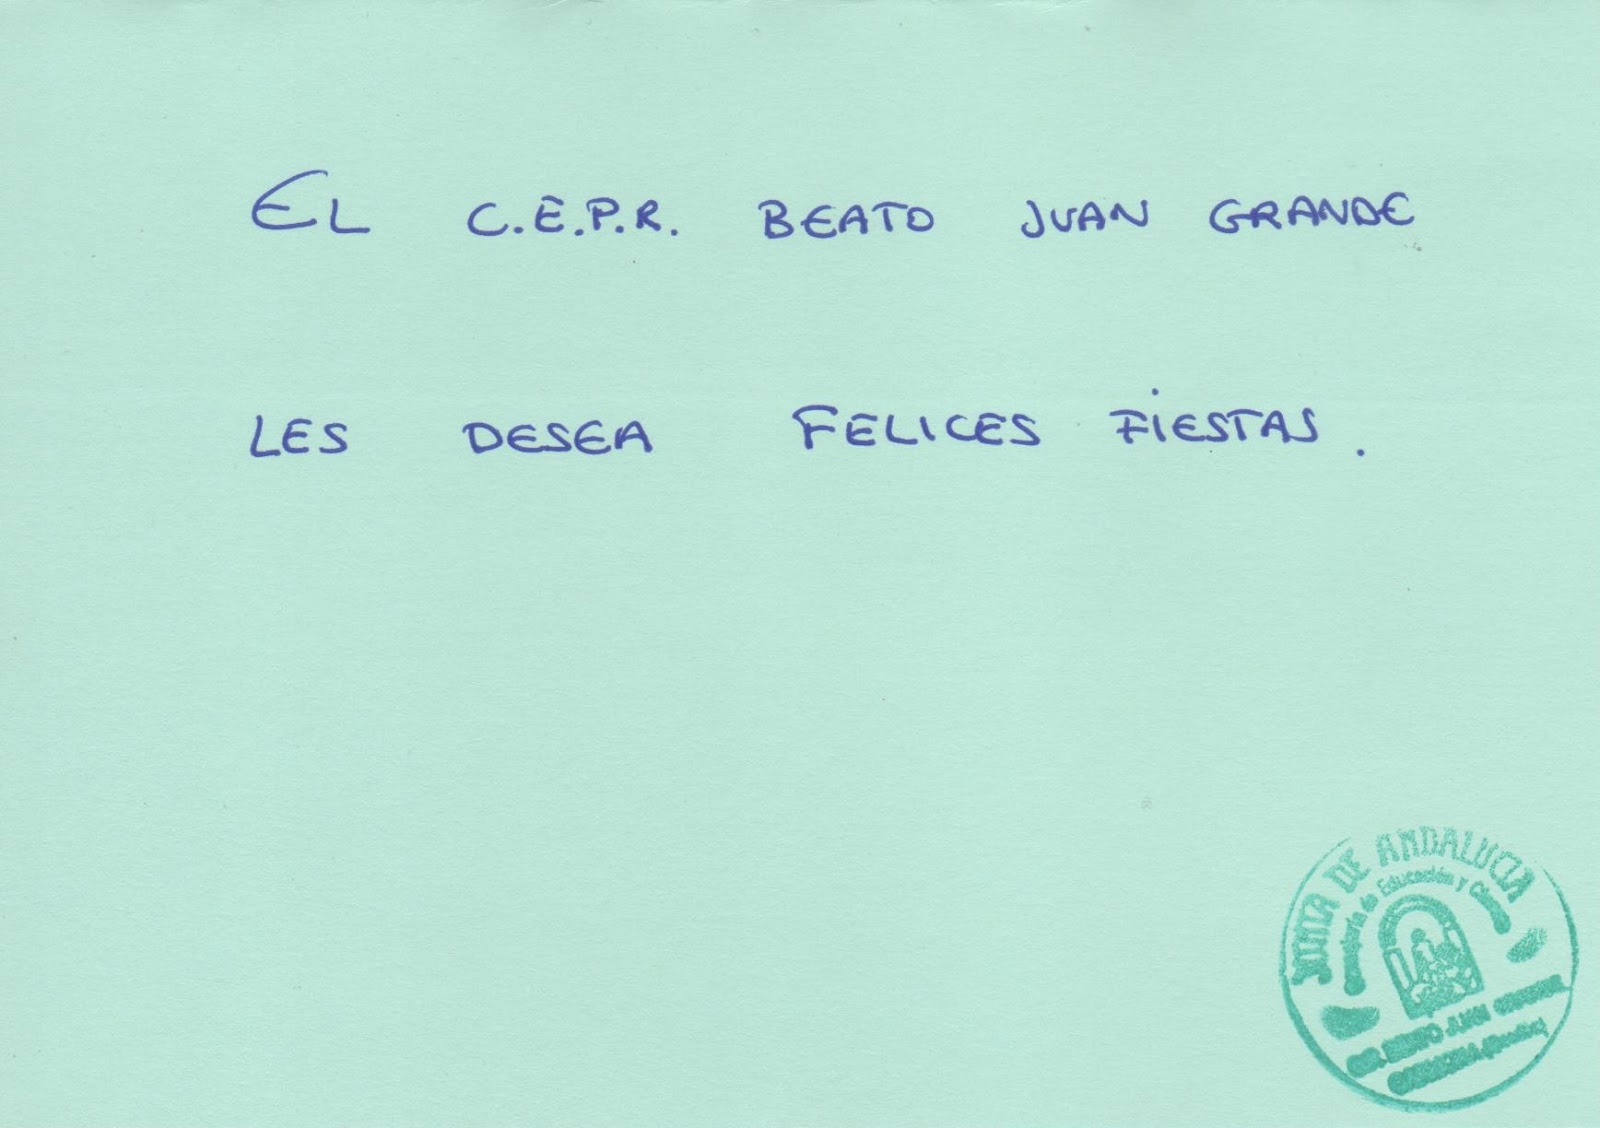 EL C.E.P.R. BEATO JUAN GRANDE
LES DESEA FELICES FIESTAS.
JUNTA DE ANDALUCIA
Consejería de Educación y
BEATO JUAN GRANDE